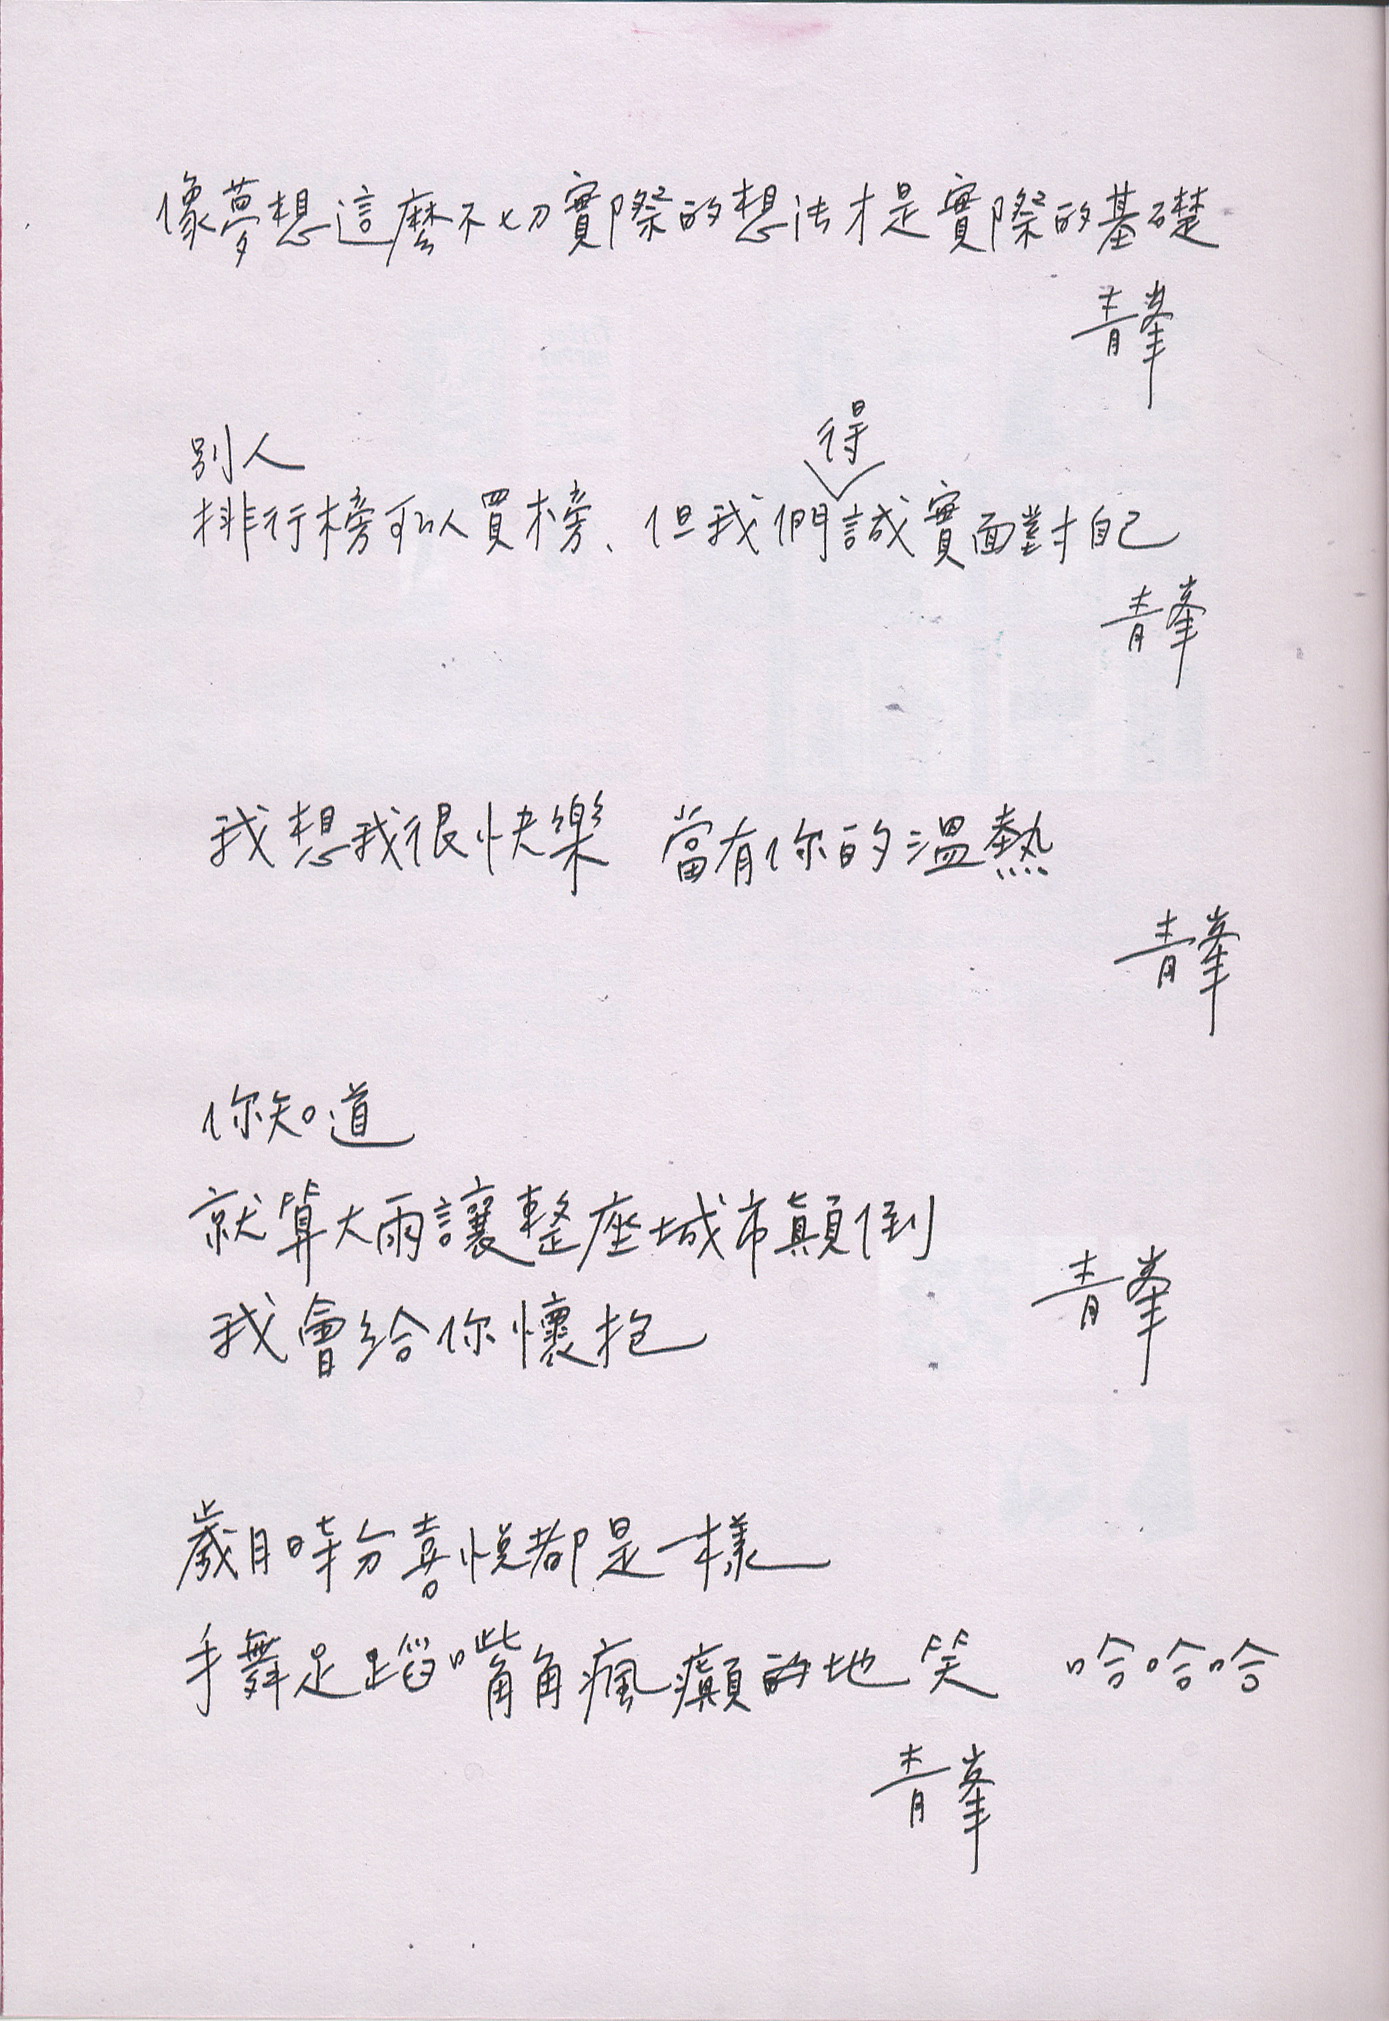 像夢想這麼不切實際的想法才是實際的基礎
青峯
別人
得
排行榜可以買榜、但我們誠實面對自己
青峯
我想我很快樂 當有你的溫熱
青峯
你知道
就算大雨讓整座城市顛倒
我會給你懷抱
青峯
歲月時分喜悅都是一樣
手舞足蹈嘴角瘋癲的地笑 哈哈哈
青峯